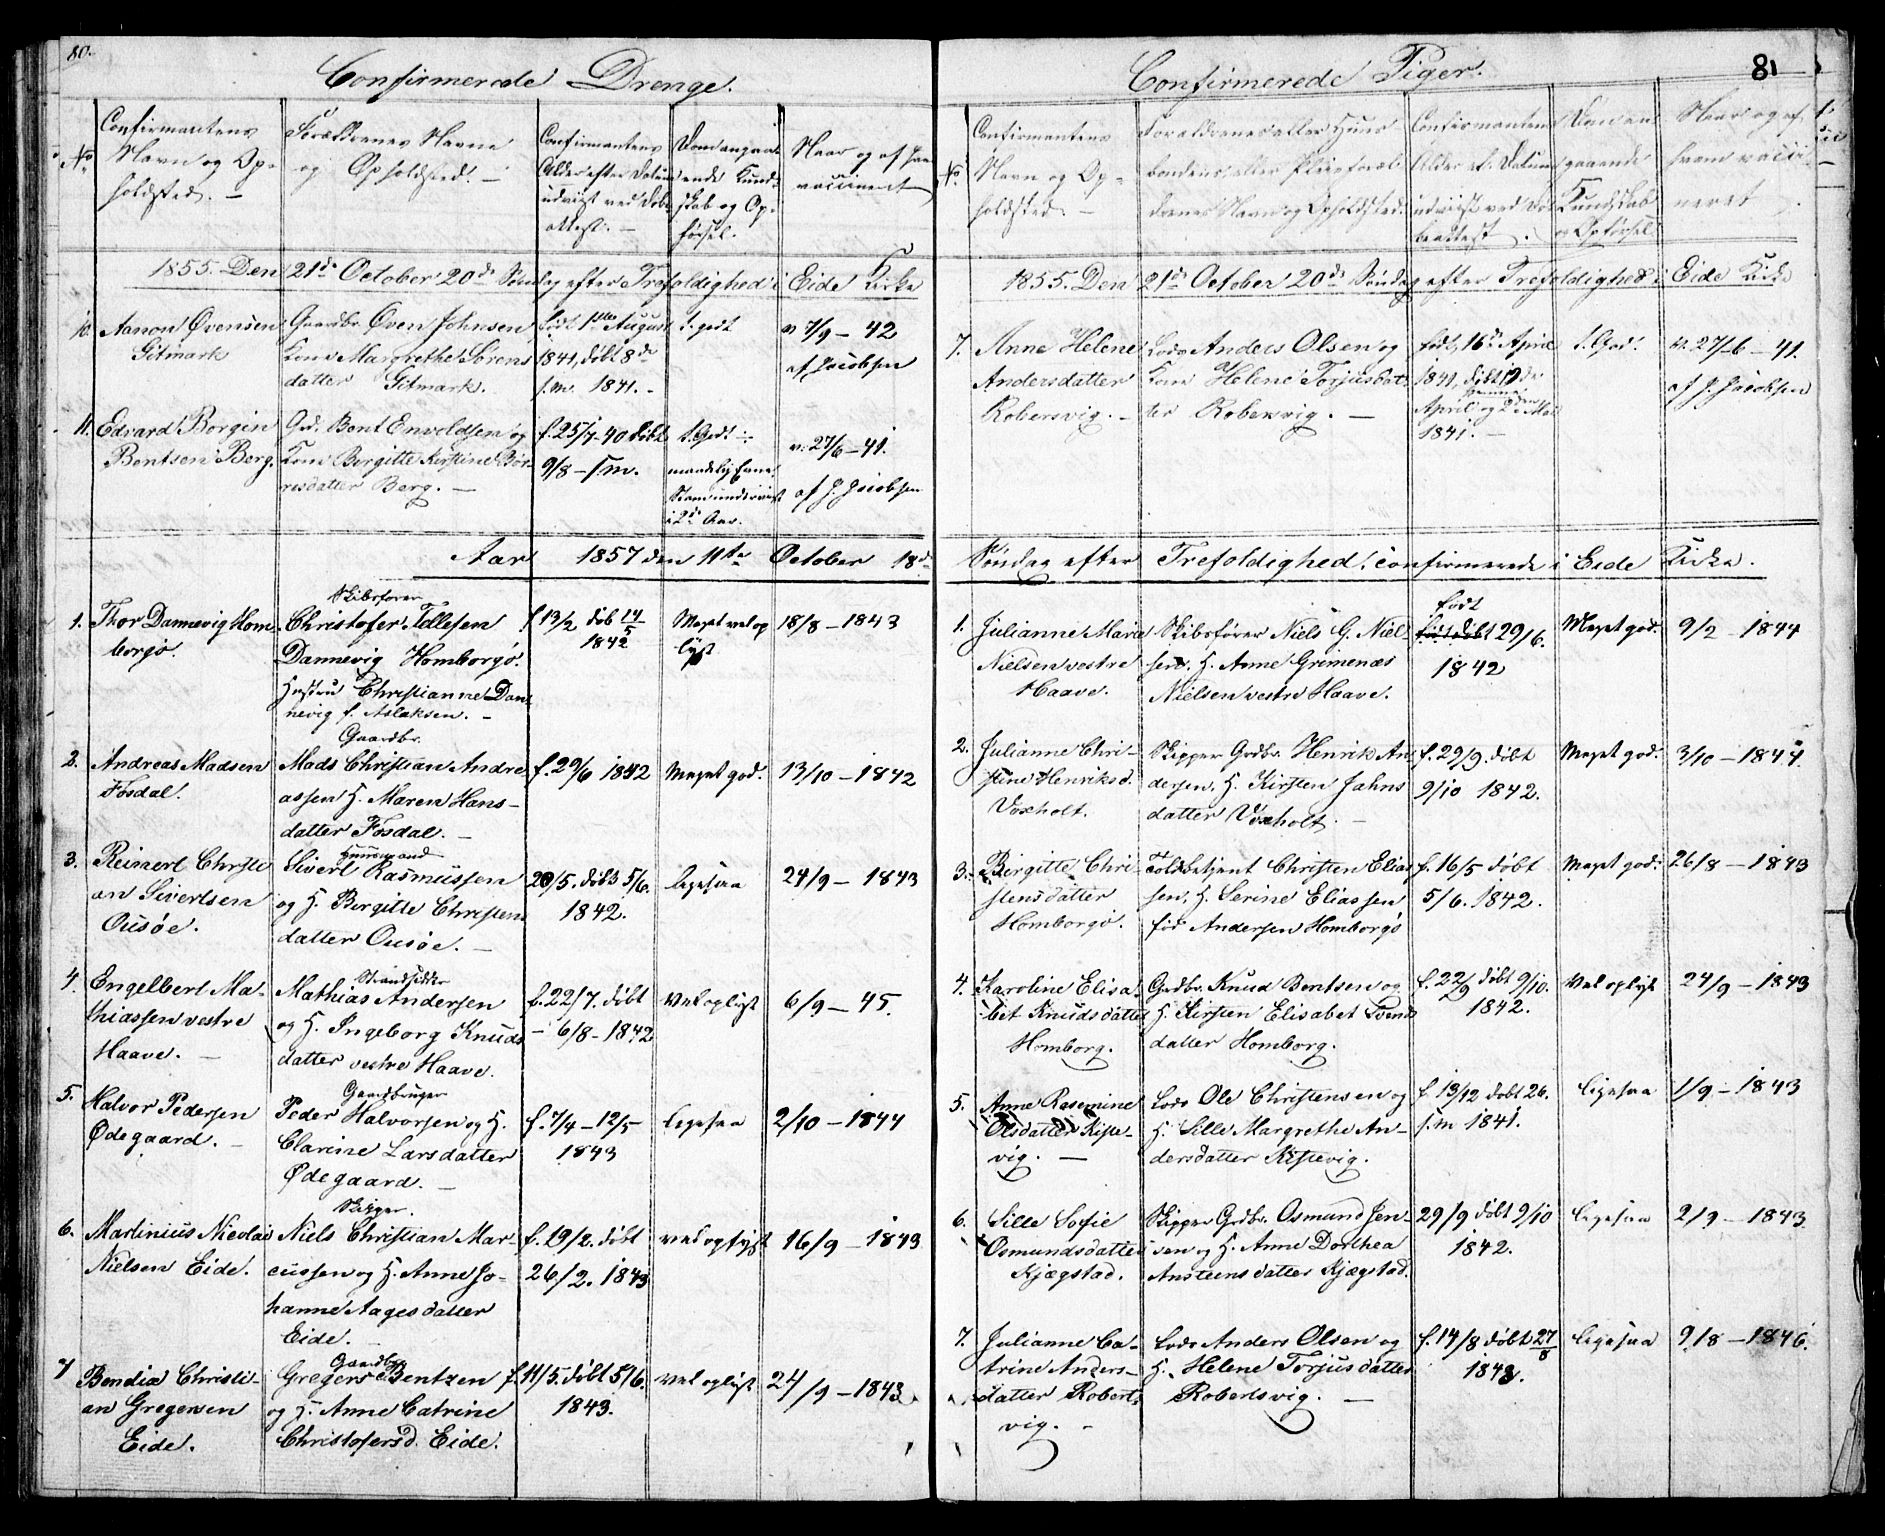 80.
Confirmerede Drenge.
No
Confirmantens
Navn og Op-
holdsted. -
Forældrenes Navne
og Opholdsted. -
Confirmantens
Alder efter Datum
udviist ved Døbe
attest. -
Dom angaa-
ende Kund-
skab og Op-
førsel.
Naar og af hvem
vaccineret
1855. Den 21de October 20de Søndag efter Trefoldighed i Eide Kirke
10. Aanon Øvensen
Gitmark
Gaardbr. Øven Johnsen
Kone Margrethe Sørens
datter Gitmark.
født 1ste August
1841, døbt 8de
s.m. 1841. -
t. godt
v. 7/9 - 42
af Jacobsen
11. Edvard Børgin
Bentsen Berg.
Gd. Bent Envoldsen og
Kone Borgitte Kirstine Bør-
resdatter Berg. -
f. 25/7-40 døbt
9/8 - s.m.
t. Godt -:
maadelig Evne
i 2de Aar.
v. 27/6 - 41.
af J. Jacobsen
Aar 1857 den 11te October 18de
1. Thor Dannevig Hom
borgø.
Skibsfører
Christofer Tellefsen
Dannevig Homborgø.
Hustru Christianne Dan-
nevig f. Aslaksen. -
f. 13/2 døb 14/5
1842
Meget vel op
lyst
18/8 - 1843
2. Andreas Madsen
Fosdal.
Gaardbr.
Mads Christian Andre
assen H. Maren Hans-
datter Fosdal. -
f. 29/6 1842
Meget god.
13/10 - 1842
3. Reinert Christi
an Sivertsen
Ousøe.
Huusmand
Sivert Rasmussen
og H. Birgitte Christens
datter Ousøe. -
20/5. døbt 5/6.
1842.
ligesaa
24/9 - 1843
4. Engelbert Ma-
thiassen vestre
Haave. -
Strandsidder
Mathias Andersen
og H. Ingeborg Knuds
datter vestre Haave.
f. 22/7. døbt
- 6/8 - 1842
Vel oplyst
6/9 - 45.
5. Halvor Pedersen
Ødegaard. -
Gaardbruger
Peder Halvorsen og H.
Clarine Larsdatter
Ødegaard. -
f. 7/4 - 12/5
1843
ligesaa
2/10 - 1844
6. Martinius Nicolai
Nielsen Eide.
Skipper.
Niels Christian Mar-
cussen og H. Anne Jo-
hanne Aagesdatter
Eide. -
f. 19/2. døbt
26/2. 1843
vel oplyst
16/9 - 1843
7 Bendix Christi-
an Gregersen
Eide.
Gaardbr
Gregers Bentzen
og H. Anne Catrine
Christofersd. Eide.
f. 11/5. døbt 5/6.
1843.
vel oplyst
24/9 - 1843
81
Confirmerede Piger.
No.
Confirmantens
Navn og Op-
holdsted. -
Forældrenes eller Huus
bondens, eller Pleieforæl-
drenes Navn og Opholdsted.
Confirmantens
Alder ef. Datum
udviist ved Dø
beattest.
Dom an
gaaende
Kundskab
og Opførsel
Naar og af
hvem vacci-
neret.
1855. Den 21de October 20de Søndag efter Trefoldighed i Eide Kirke
7. Anne Helene
Andersdatter
Robersvig. -
Lods Anders Olsen og
Kone Helene Torjusdat-
ter Robersvig. -
født, 16de April
1841, døbt
April og 2den Mai
1841. -
t. God.
v. 27/6 - 41.
af J. Jacobsen
Søndag efter Trefoldighed confirmerede i Eide Kirke.
1. Julianne Marie
Nielsen vestre
Haave.
Skibsfører Niels G. Niel-
sen. H. Anne Grimenæs
Nielsen vestre Haave.
født
29/6.
1842
Meget god.
9/2 - 1844
2. Julianne Chri-
stine Henriksd.
Voxholt.
Skipper Grdbr. Henrik An
dersen, H. Kirsten Jahns
datter Voxholt. -
f. 29/9 døbt
9/10 1842.
Meget god.
3/10 - 1844
3. Birgitte Chri-
stensdatter
Homborgø.
Toldbetjent Christen Elias
sen, H. Serine Eliassen
fød Andersen Homborgø
f. 16/5 døbt
5/6. 1842.
Meget god.
26/8 - 1843
4. Karoline Elisa-
bet Knudsdatter
Homborg.
Grdbr. Knud Bentsen og
H. Kirsten Elisabet Svends
datter Homborg.
f. 22/9 døbt 9/10.
1842.
Vel oplyst
24/9 - 1843
5. Anne Rasemine
Olsdatter Kiste-
vig. -
Lods Ole Christensen og
H. Sille Margrethe An-
dersdatter Kistevig.
f. 13/12 døbt 26.
s.m 1841.
ligesaa
1/9 - 1843
6. Sille Sofie
Osmundsdatter
Kjægstad.
Skipper Grdbr. Osmund Jen-
sen og H. Anne Dorthea
Ansteensdatter Kjægstad.
29/9 døbt 9/10
1842.
ligesaa
2/9 - 1843
7. Julianne Ca-
trine Anders-
datter Roberts
vig. -
Lods Anders Olsen og
H. Helene Torjusdatter
Robertsvig. -
f. 14/8 døbt 27/8
1843.
ligesaa
9/8 - 1846